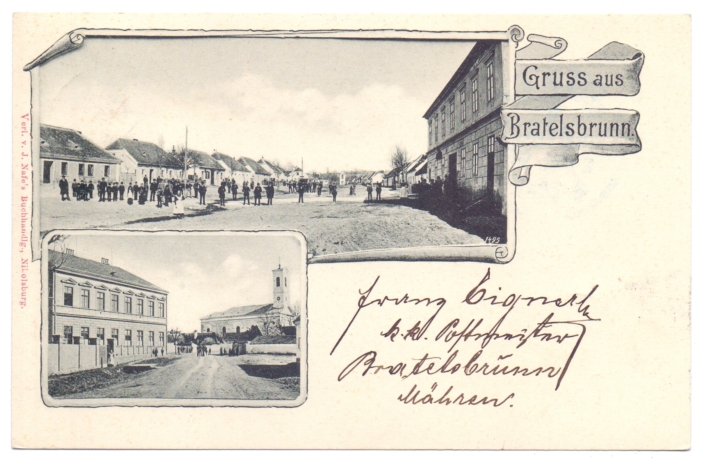 Gruss aus
Bratelsbrunn.
1495
Verl. v. J. Nafe's Buchhandlg., Nikolsburg.
Franz
k. k. Postmeister
Bratelsbrünn
Mähren.